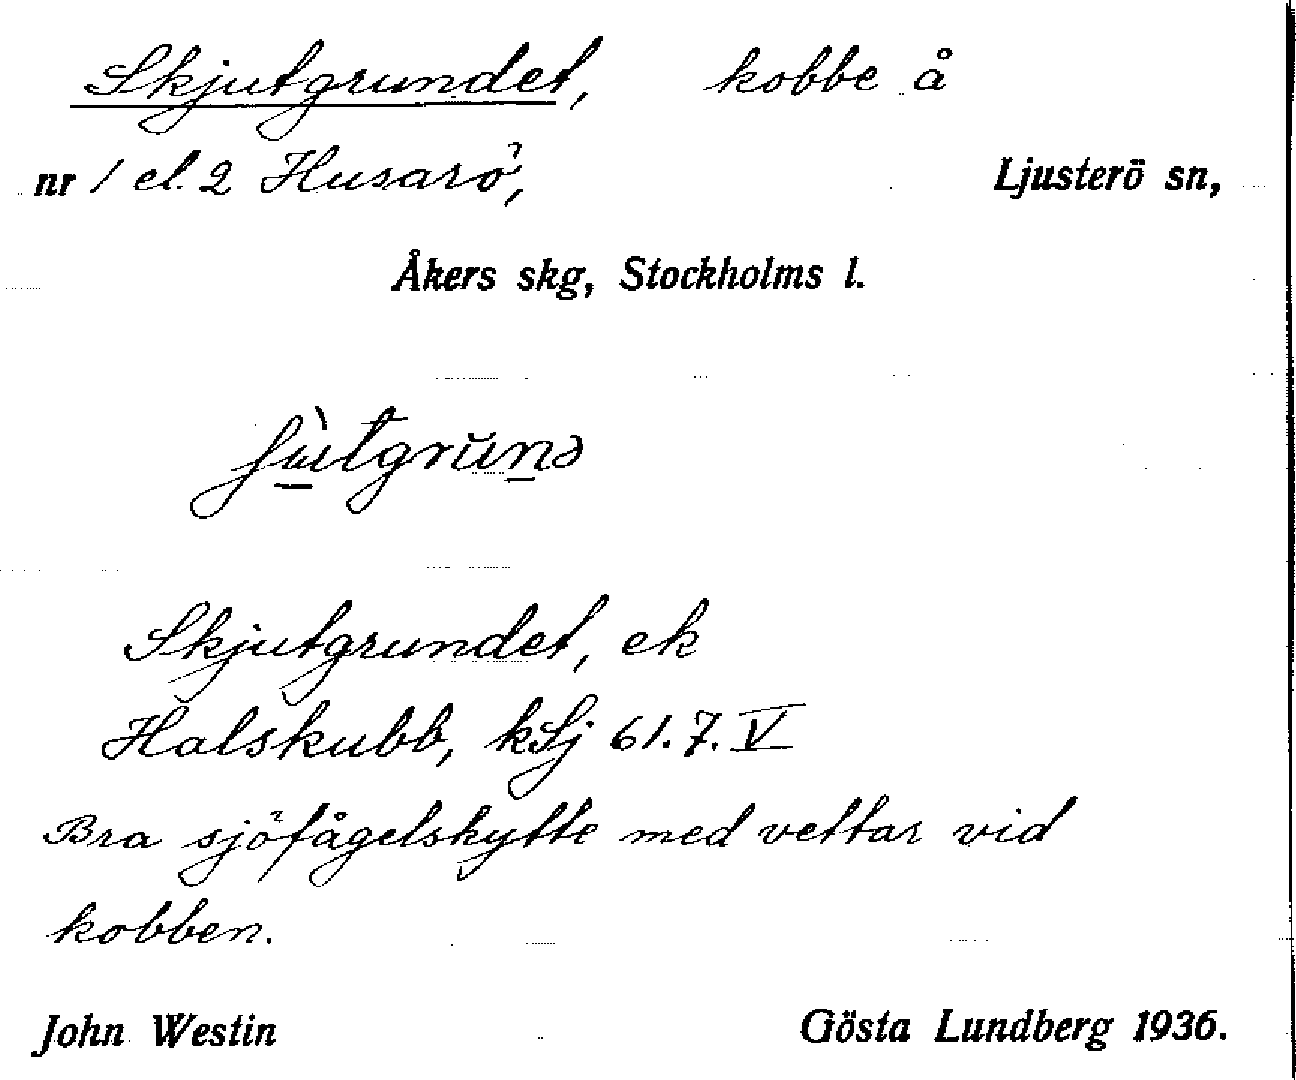 Skjutgrundet, kobbe å
nr 1 el. 2 Husarö, Ljusterö sn,
Åkers skg, Stockholms l.
Skjutgrundet, ek
Halskubb, kSj 61.7.V
Bra sjöfågelskytte med vettar vid
kobben.
John Westin Gösta Lundberg 1936.